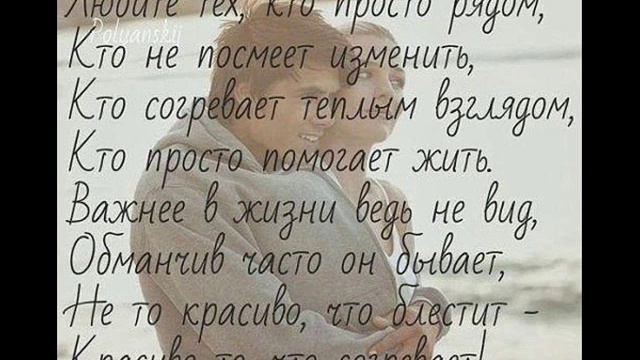 Любите тех, кто просто рядом,
Poluanskij
Кто не посмеет изменить,
Кто согревает теплым взглядом,
Кто просто помогает жить.
Важнее в жизни ведь не вид,
Обманчив часто он бывает,
Не то красиво, что блестит -
Красиво то, что согревает!